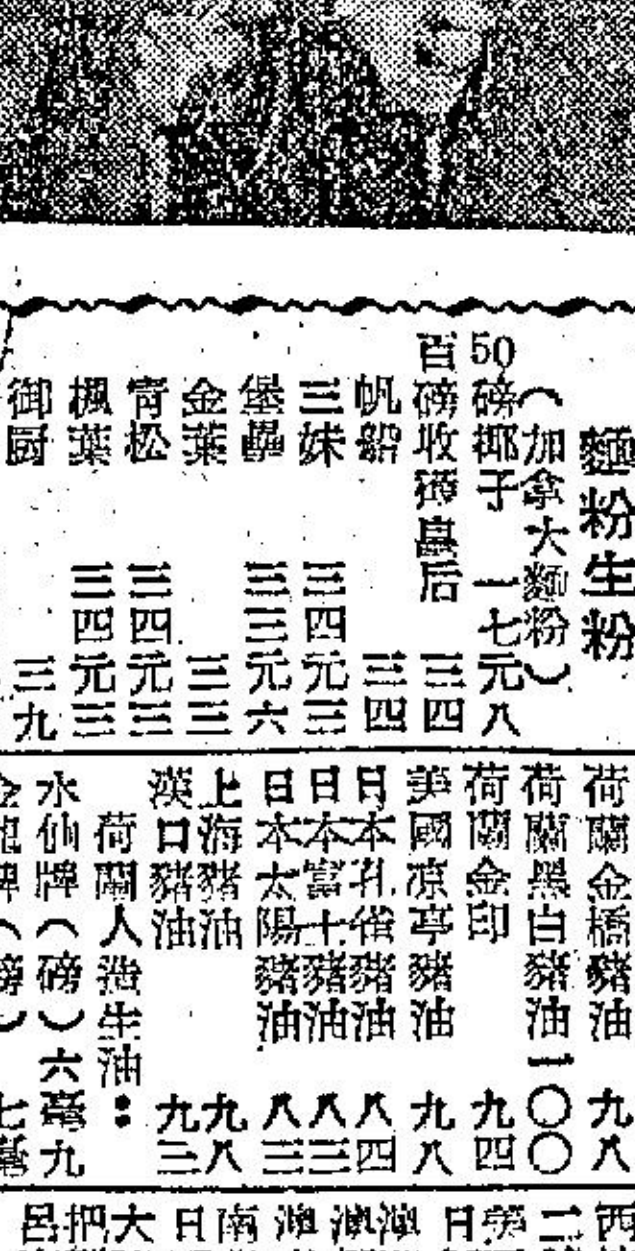 麵粉生粉
（加拿大麵粉）
50磅椰子　一七元八
百磅收穫皇后　三四
帆船　三四
三妹　三四元三
堡壘　三三元六
金葉　三三
青松　三四元三
楓葉　三四元三
御厨　三九
荷蘭金橋豬油　九八
荷蘭黑白豬油一〇〇
荷蘭金印　九四
美國凉亭豬油　九八
日本孔雀豬油　八四
日本富士豬油　八三
日本太陽豬油　八三
上海豬油　九八
漢口豬油　九三
荷蘭人造生油：
水仙牌（磅）六毫九
金龍牌（磅）七毫
西
二
美
日
南
日
大
把
呂